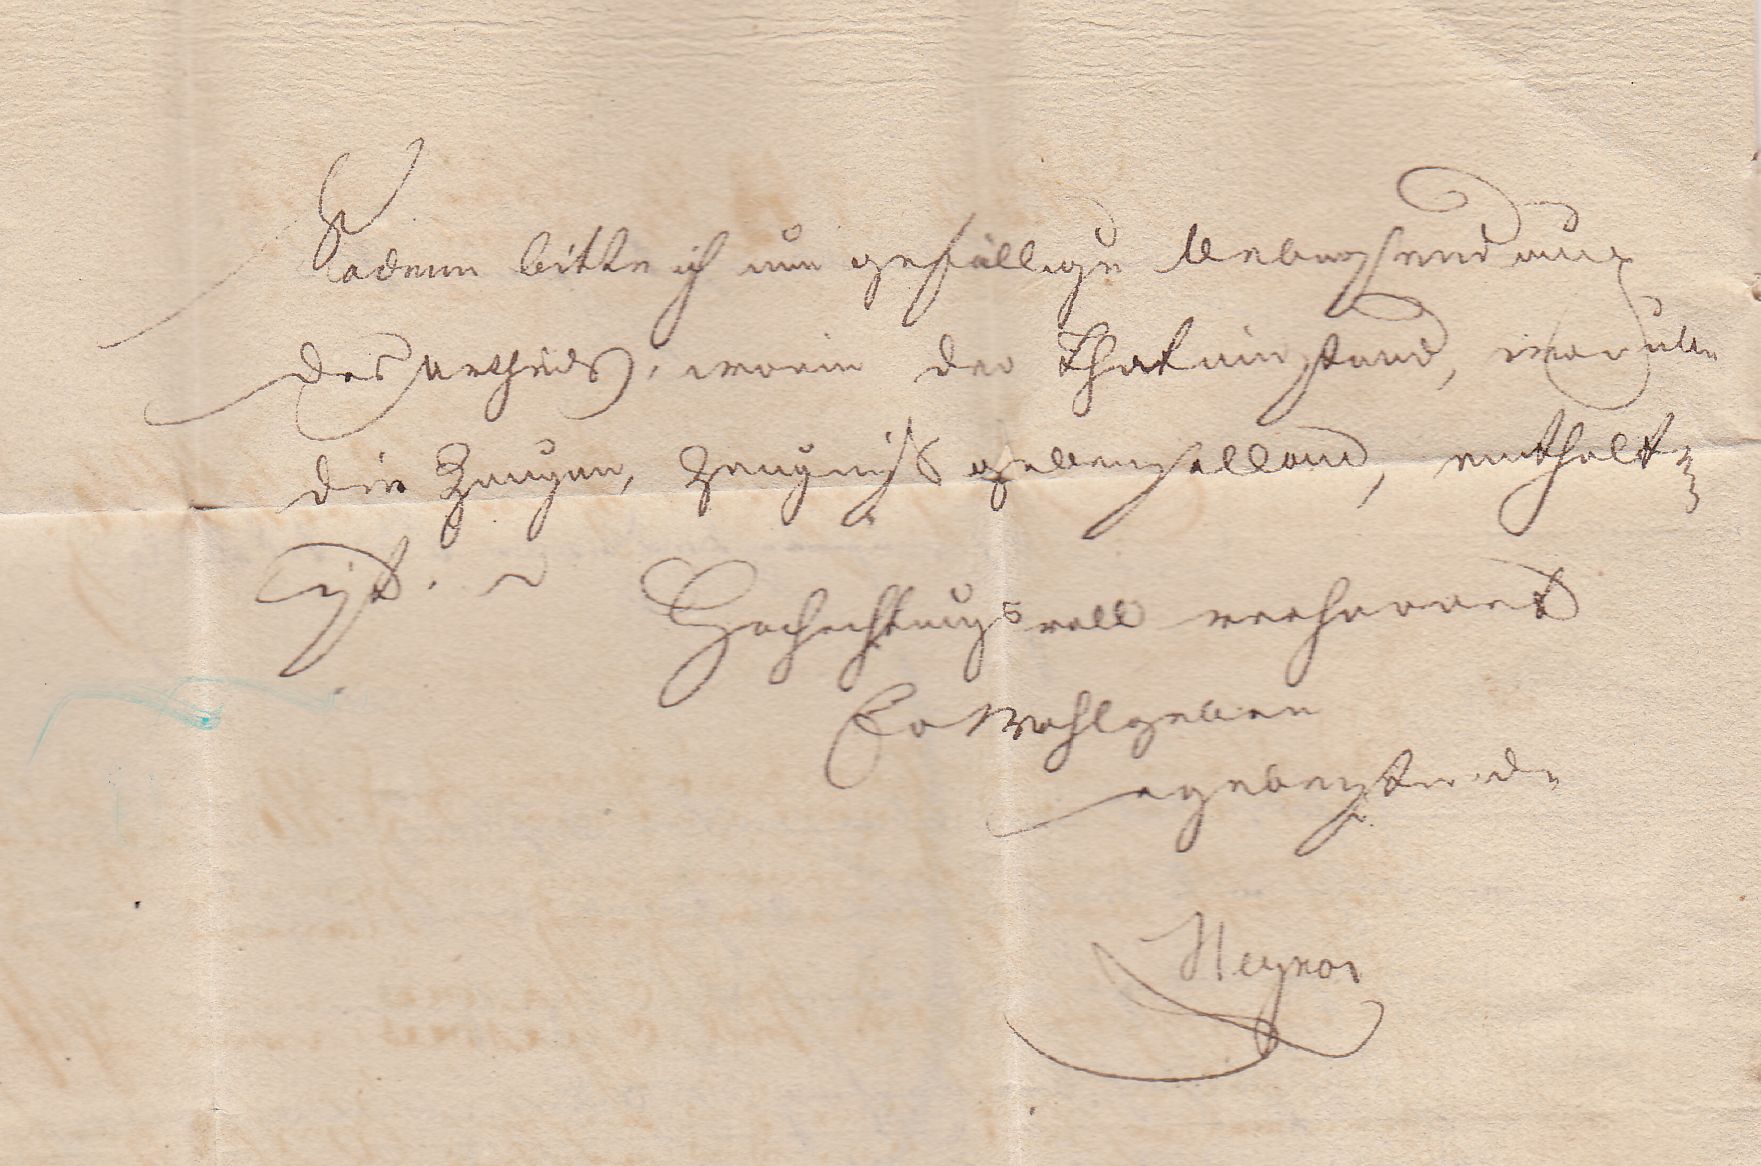 Zudem bitte ich um gefällige Uebersendung
des Urtheils, worin der Thatumstand, worüber
die Zeugen, Zeugniß geben sollen, enthalten
ist.
Hochachtungsvoll verharret
Ew Wohlgeboren
ergebenster